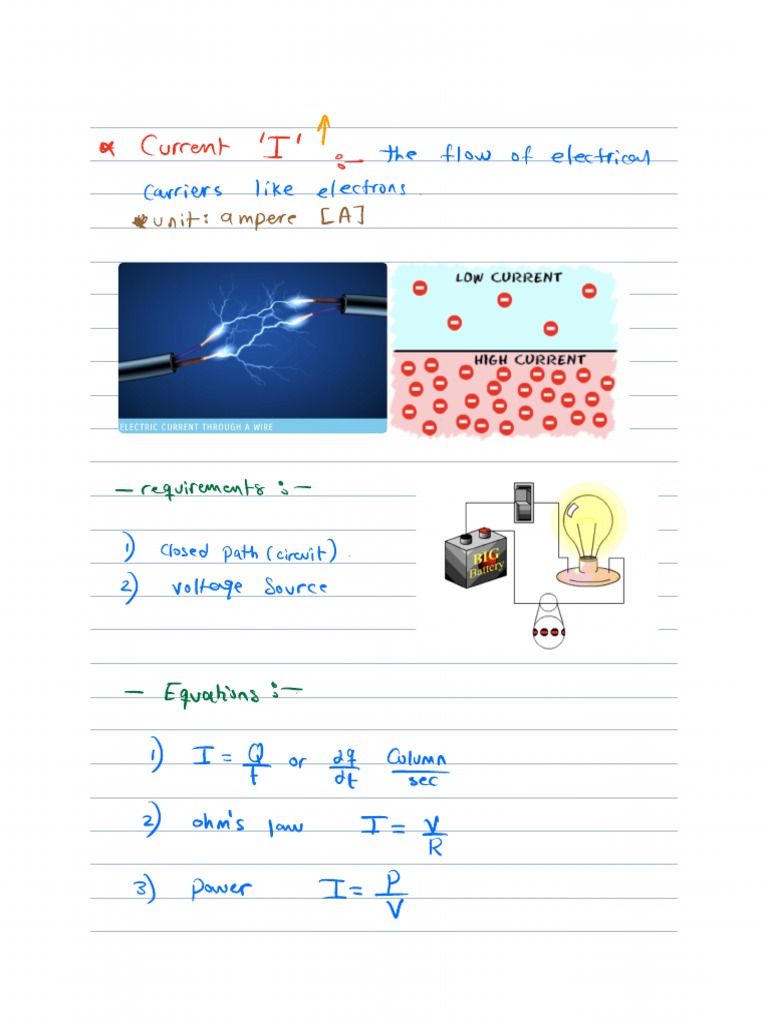 * Current 'I' :- the flow of electrical
carriers like electrons.
* unit: ampere [A]
LOW CURRENT
HIGH CURRENT
ELECTRIC CURRENT THROUGH A WIRE
- requirements :-
1) closed path (circuit).
2) voltage source
BIG
Battery
- Equations :-
1) I = Q/t or dq/dt Column/sec
2) ohm's law I = V/R
3) power I = P/V